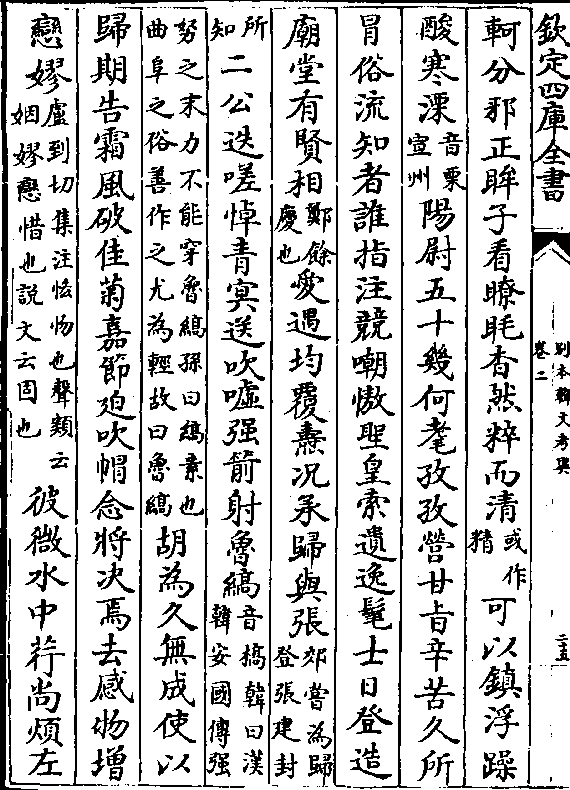 欽定四庫全書
別本韓文考異
卷二
二五
軻分邪正眸子看瞭眊杳然粹而清或作精可以鎮浮躁
酸寒溧音栗宣州陽尉五十幾何耄孜孜營甘旨辛苦久所
冒俗流知者誰指注競嘲慠聖皇索遺逸髦士日登造
廟堂有賢相鄭餘慶也愛遇均覆燾况承歸與張郊嘗為歸登張建封
所知二公迭嗟悼青冥送吹噓强箭射魯縞音槁韓曰漢韓安國傳强
弩之末力不能穿魯縞孫曰縞素也曲阜之俗善作之尤為輕故曰魯縞胡為久無成使以
歸期告霜風破佳菊嘉節迫吹帽念將决焉去感物增
戀嫪盧到切集注恡物也聲類云姻嫪戀惜也說文云固也彼微水中荇尚煩左